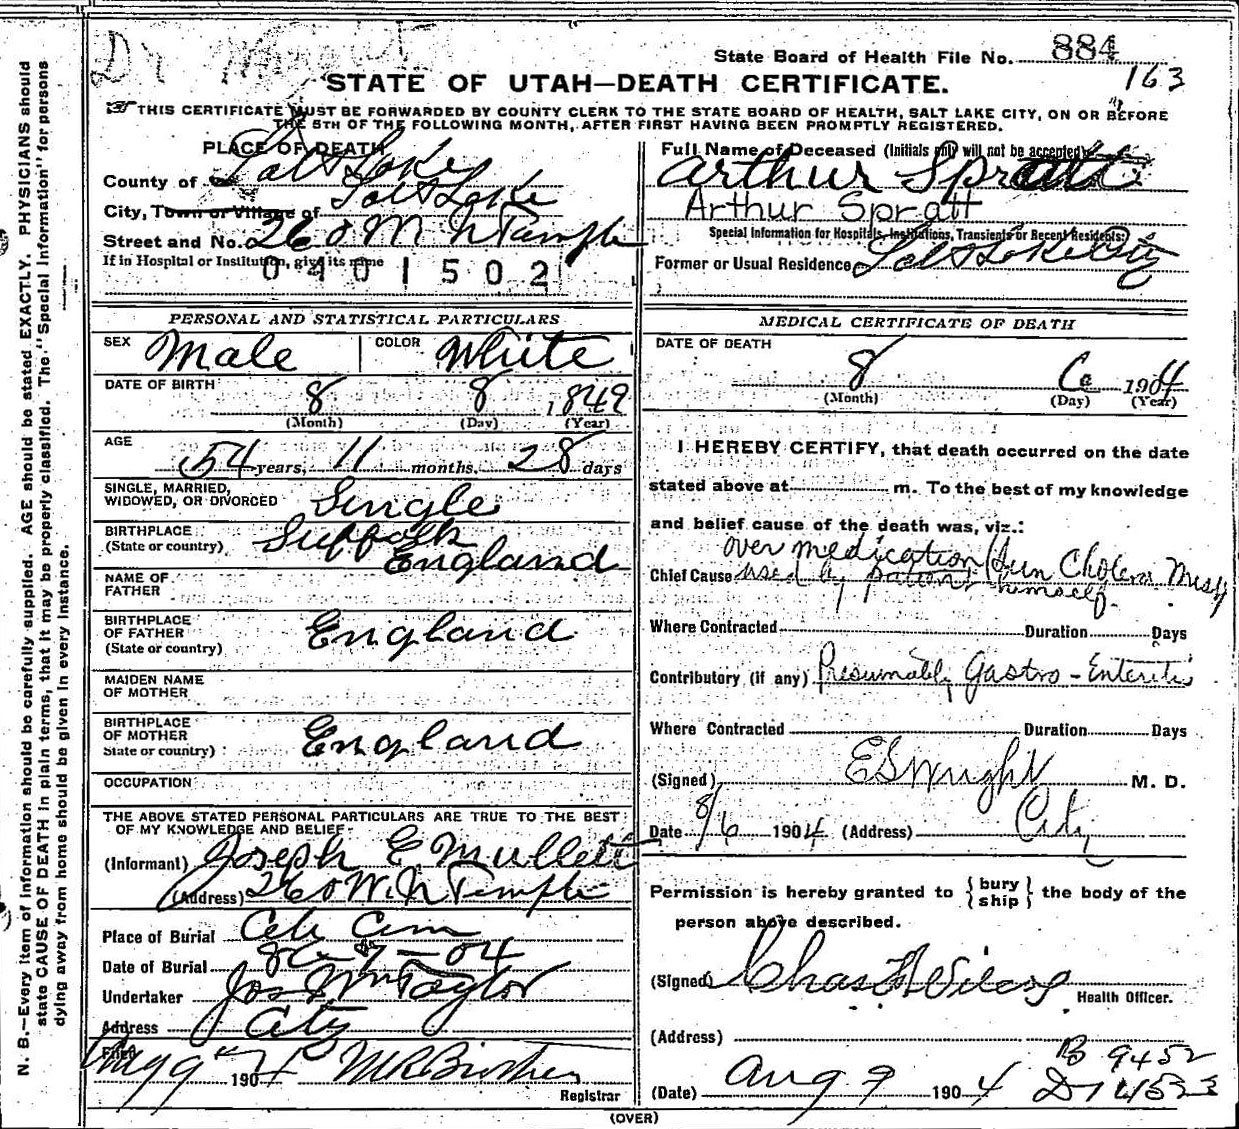 Dr
State Board of Health File No. 884
163
STATE OF UTAH—DEATH CERTIFICATE.
THIS CERTIFICATE MUST BE FORWARDED BY COUNTY CLERK TO THE STATE BOARD OF HEALTH, SALT LAKE CITY, ON OR BEFORE
THE 5TH OF THE FOLLOWING MONTH, AFTER FIRST HAVING BEEN PROMPTLY REGISTERED.
PLACE OF DEATH
County of Salt Lake
City, Town or Village of Salt Lake
Street and No. 260 N Temple
If in Hospital or Institution, give its name
0401502
Full Name of Deceased (Initials only will not be accepted)
Arthur Spratt
Arthur Spratt
Special Information for Hospitals, Institutions, Transients or Recent Residents:
Former or Usual Residence Salt Lake City
PERSONAL AND STATISTICAL PARTICULARS
SEX Male COLOR White
DATE OF BIRTH
8 8 1849
(Month) (Day) (Year)
AGE
54 years, 11 months, 28 days
SINGLE, MARRIED,
WIDOWED, OR DIVORCED Single
BIRTHPLACE
(State or country) Suffolk
England
NAME OF
FATHER
BIRTHPLACE
OF FATHER
(State or country) England
MAIDEN NAME
OF MOTHER
BIRTHPLACE
OF MOTHER
State or country) England
OCCUPATION
THE ABOVE STATED PERSONAL PARTICULARS ARE TRUE TO THE BEST
OF MY KNOWLEDGE AND BELIEF
(Informant) Joseph E Mullett
(Address) 260 W. N Temple
Place of Burial City Cem
Date of Burial
Undertaker Jos Wm Taylor
Address City
Filed Aug 9 1904
Registrar
MEDICAL CERTIFICATE OF DEATH
DATE OF DEATH
8 6 1904
(Month) (Day) (Year)
I HEREBY CERTIFY, that death occurred on the date
stated above at m. To the best of my knowledge
and belief cause of the death was, viz.:
over medication (Sun Cholera
Chief Cause used by patient himself.
Where Contracted Duration Days
Contributory (if any) Presumably Gastro-Enteritis
Where Contracted Duration Days
(Signed) E S Wright M. D.
Date 8/6 1904 (Address) City
Permission is hereby granted to { bury
ship } the body of the
person above described.
(Signed) Chas
Health Officer.
(Address)
B 9452
(Date) Aug 9 1904
(OVER)
N. B.—Every item of information should be carefully supplied. AGE should be stated EXACTLY. PHYSICIANS should
state CAUSE OF DEATH in plain terms, that it may be properly classified. The "Special Information" for persons
dying away from home should be given in every instance.